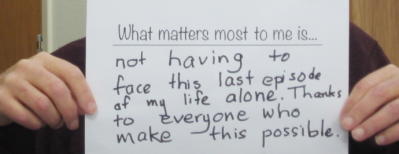 What matters most to me is...
not having to
face this last episode
of my life alone. Thanks
to everyone who
make this possible.